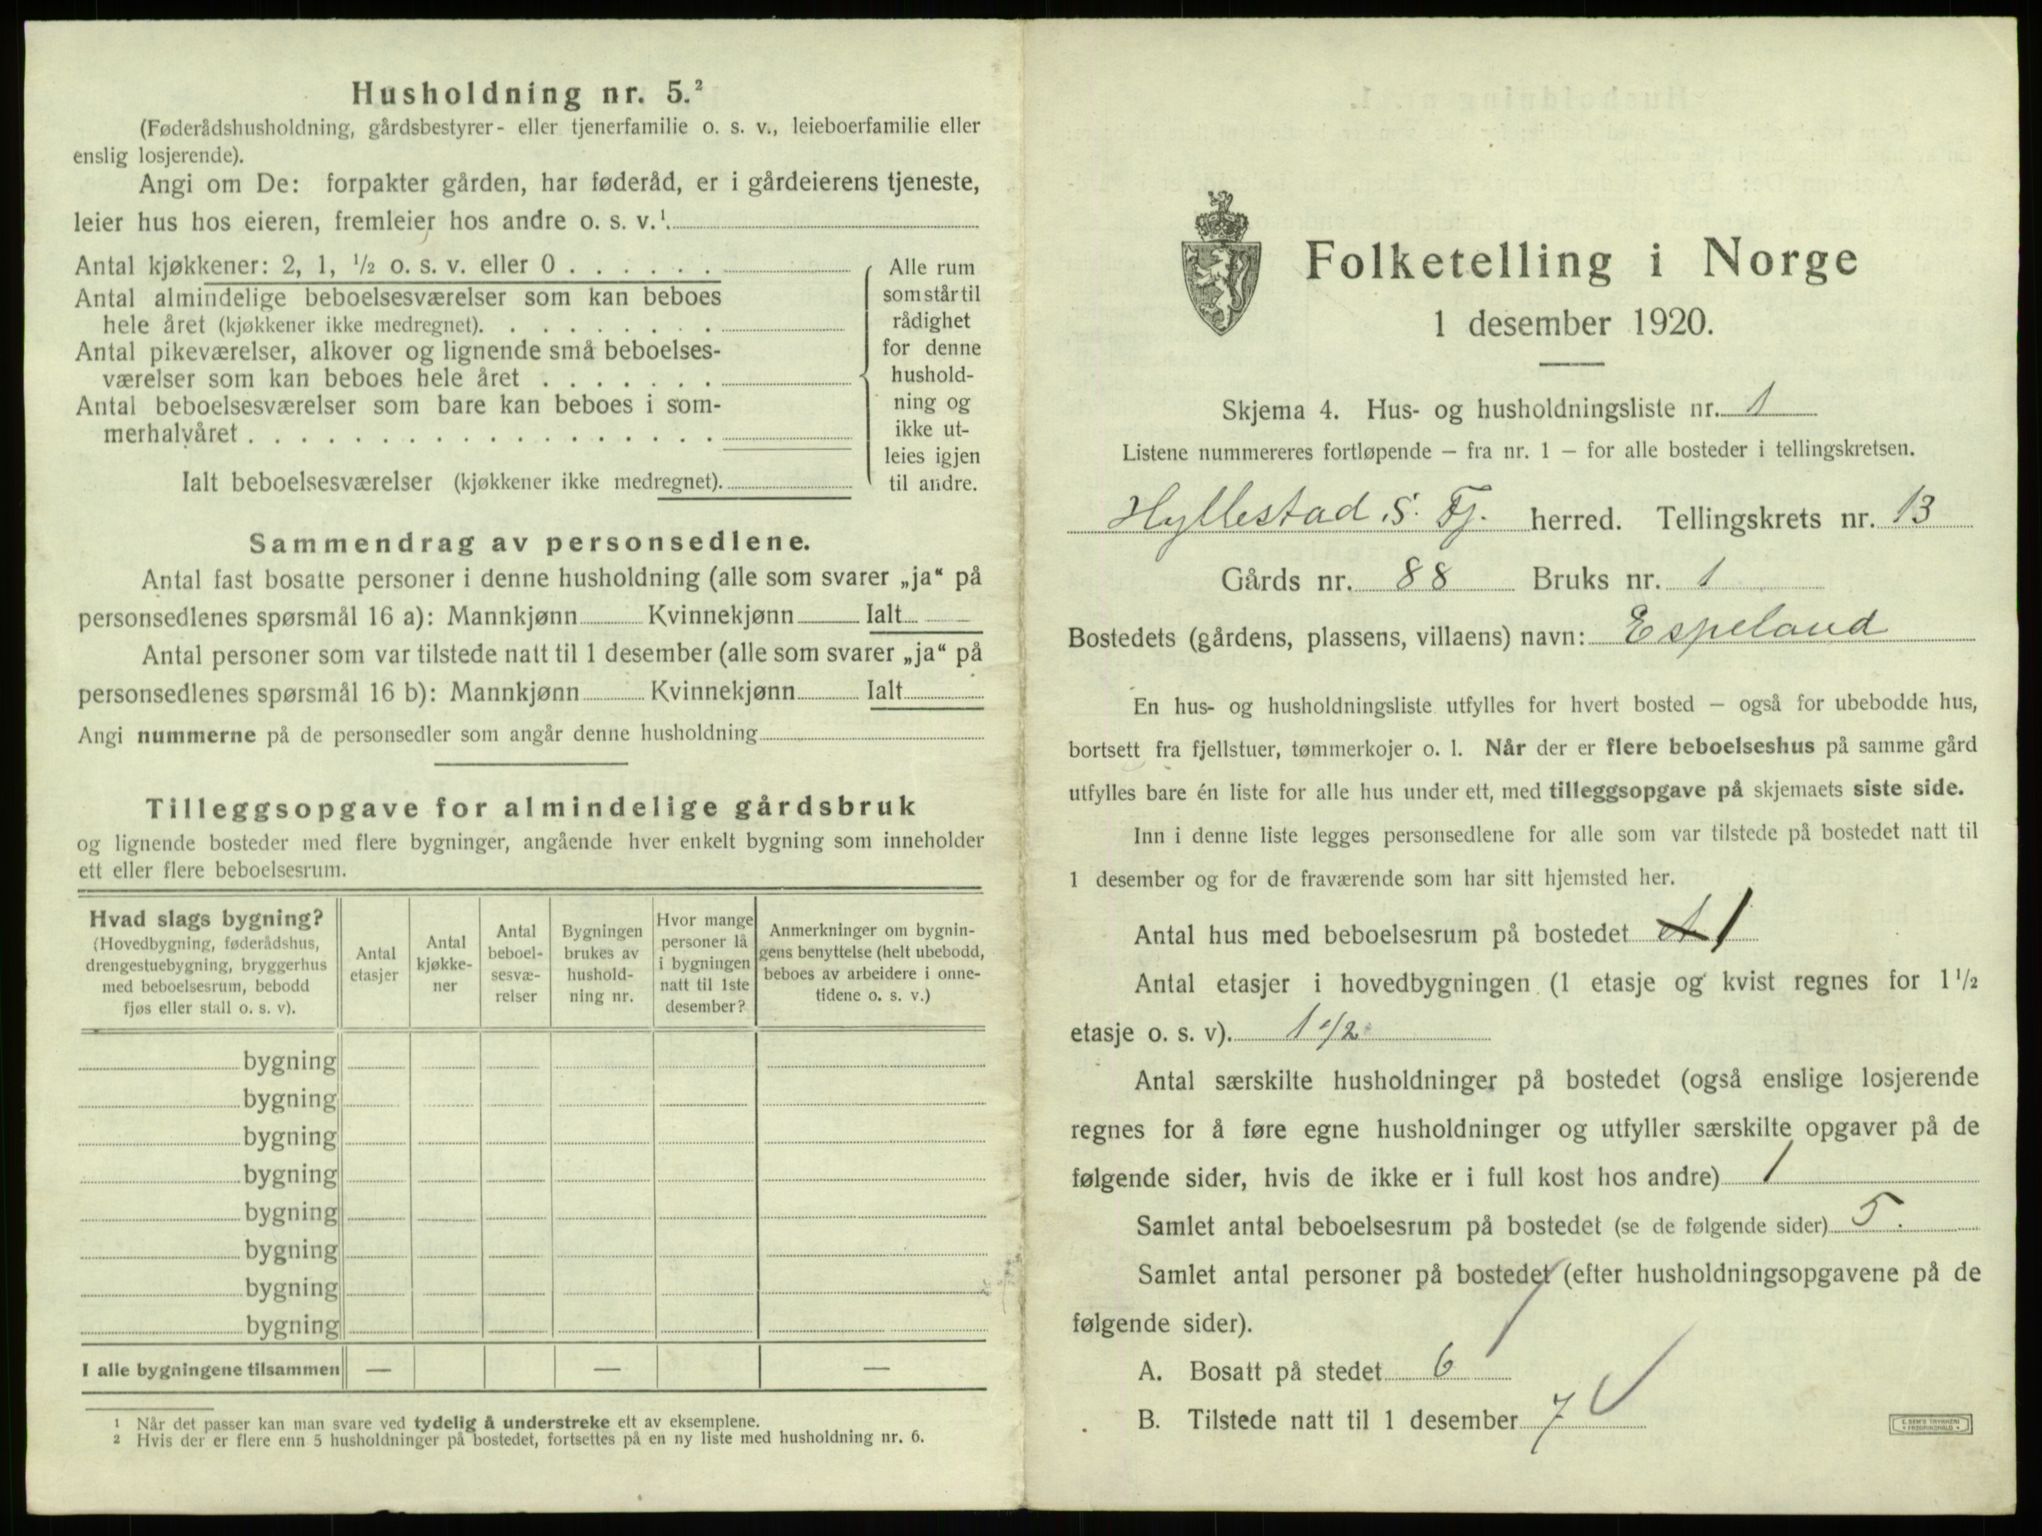 Husholdning nr. 5.²
(Føderådshusholdning, gårdsbestyrer- eller tjenerfamilie o. s. v., leieboerfamilie eller
enslig losjerende).
Angi om De: forpakter gården, har føderåd, er i gårdeierens tjeneste,
leier hus hos eieren, fremleier hos andre o. s. v.¹
Antal kjøkkener: 2, 1, ½ o. s. v. eller 0 . . . . . .
Antal almindelige beboelsesværelser som kan beboes
hele året (kjøkkener ikke medregnet). . . . . . . . .
Antal pikeværelser, alkover og lignende små beboelses-
værelser som kan beboes hele året . . . . . . .
Antal beboelsesværelser som bare kan beboes i som-
merhalvåret . . . . . . . . . . . . . . . . . .
Ialt beboelsesværelser (kjøkkener ikke medregnet).
Alle rum
som står til
rådighet
for denne
hushold-
ning og
ikke ut-
leies igjen
til andre.
Sammendrag av personsedlene.
Antal fast bosatte personer i denne husholdning (alle som svarer „ja“ på
personsedlenes spørsmål 16 a): Mannkjønn Kvinnekjønn Ialt
Antal personer som var tilstede natt til 1 desember (alle som svarer „ja“ på
personsedlenes spørsmål 16 b): Mannkjønn Kvinnekjønn Ialt
Angi nummerne på de personsedler som angår denne husholdning
Tilleggsopgave for almindelige gårdsbruk
og lignende bosteder med flere bygninger, angående hver enkelt bygning som inneholder
ett eller flere beboelsesrum.
Hvad slags bygning?
(Hovedbygning, føderådshus,
drengestuebygning, bryggerhus
med beboelsesrum, bebodd
fjøs eller stall o. s. v).
Antal
etasjer
Antal
kjøkke-
ner
Antal
beboel-
sesvæ-
relser
Bygningen
brukes av
hushold-
ning nr.
Hvor mange
personer lå
i bygningen
natt til 1ste
desember?
Anmerkninger om bygnin-
gens benyttelse (helt ubebodd,
beboes av arbeidere i onne-
tidene o. s. v.)
bygning
bygning
bygning
bygning
bygning
bygning
bygning
bygning
I alle bygningene tilsammen — — —
¹ Når det passer kan man svare ved tydelig å understreke ett av eksemplene.
² Hvis der er flere enn 5 husholdninger på bostedet, fortsettes på en ny liste med husholdning nr. 6.
Folketelling i Norge
1 desember 1920.
Skjema 4. Hus- og husholdningsliste nr. 1
Listene nummereres fortløpende — fra nr. 1 — for alle bosteder i tellingskretsen.
Hyllestad S. Fj. herred. Tellingskrets nr. 13
Gårds nr. 88 Bruks nr. 1
Bostedets (gårdens, plassens, villaens) navn: Espeland
En hus- og husholdningsliste utfylles for hvert bosted — også for ubebodde hus,
bortsett fra fjellstuer, tømmerkojer o. l. Når der er flere beboelseshus på samme gård
utfylles bare én liste for alle hus under ett, med tilleggsopgave på skjemaets siste side.
Inn i denne liste legges personsedlene for alle som var tilstede på bostedet natt til
1 desember og for de fraværende som har sitt hjemsted her.
Antal hus med beboelsesrum på bostedet 1
Antal etasjer i hovedbygningen (1 etasje og kvist regnes for 1½
etasje o. s. v). 1 1/2
Antal særskilte husholdninger på bostedet (også enslige losjerende
regnes for å føre egne husholdninger og utfyller særskilte opgaver på de
følgende sider, hvis de ikke er i full kost hos andre) 1
Samlet antal beboelsesrum på bostedet (se de følgende sider) 5.
Samlet antal personer på bostedet (efter husholdningsopgavene på de
følgende sider).
A. Bosatt på stedet 6
B. Tilstede natt til 1 desember 7